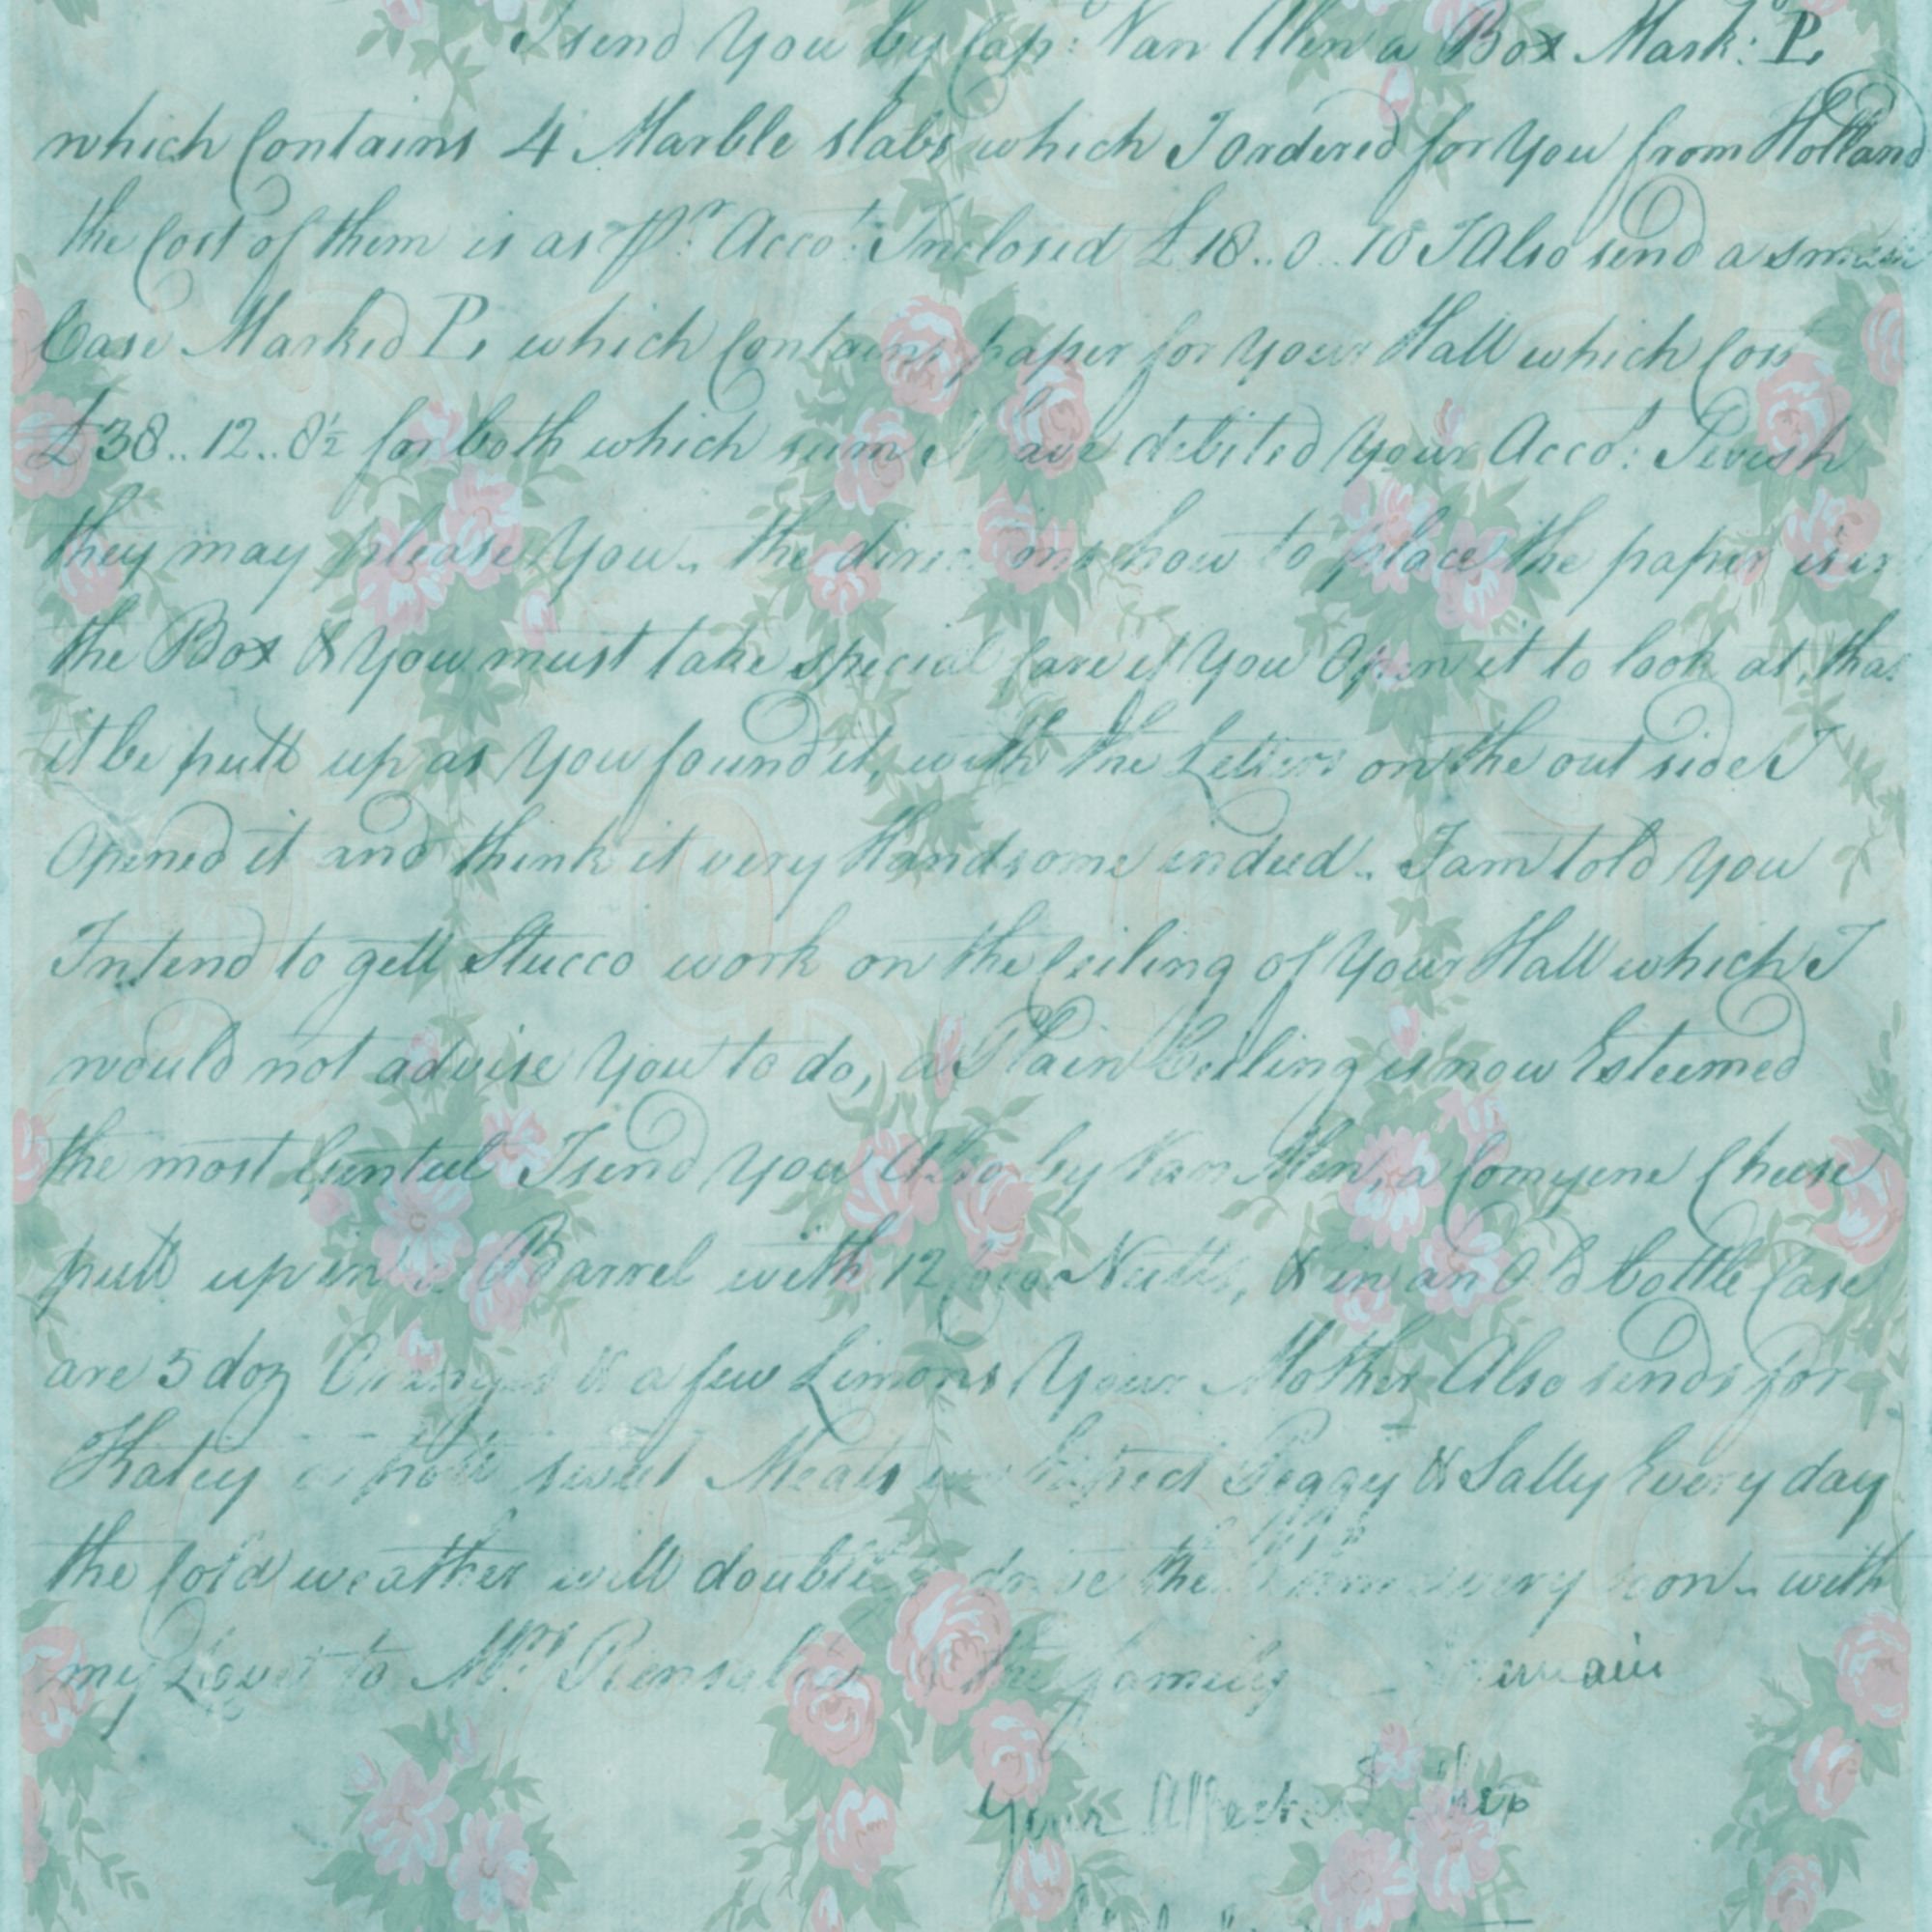 I send You by Cap: Van Allen a Box Mark: P,
which Contains 4 Marble slabs which I Ordered for You from Holland
the Cost of them is as Pr. Accot: Inclosed £ 18..0..10 I Also send a small
Case Marked P, which Contains paper for Your Hall which Cost
£38..12..8½ for both which sums I have debited Your Acco:t I wish
they may please You. the directions how to place the paper is in
the Box & You must take special Care if You Open it to look at, that
it be putt up as You found it, with the Letters on the out side I
Opened it and think it very Handsome indeed. I am told You
Intend to gett Stucco work on the Ceiling of Your Hall which I
would not advise You to do, a Plain Ceiling is now Esteemed
the most Genteel I send You Also by Van Allen, a Cheese
putt up in a Barrel with 12 Nutts, & in an Old bottle Case
are 5 doz Oranges & a few Limons Your Mother Also sends for
Katey sweet Meats Peggy & Sally Every day
the Cold weather will drive them very soon. with
my Love to Mrs. Renselaer & the family remain
Your